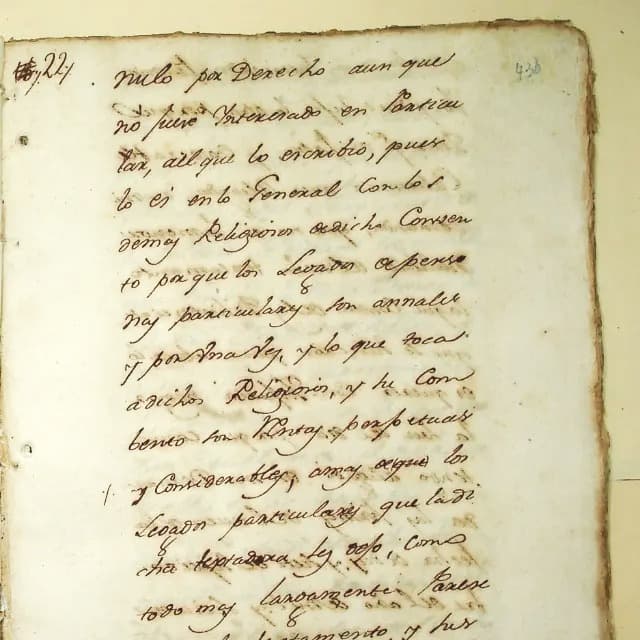 22
436
nulo por Derecho aun que
no fuese Ynteresado en Particu
lar, aquel que lo escribio, pues
lo es en lo General Con los
demas Religiosos de dicho Conven
to por que los Legados de perso
nas particulares son annales
y por Una Vez, y lo que toca
a dichos Religiosos, y su Com
bento son Rentas perpetuas
y Considerables, a mas de que los
Legados particulares que la di
cha testadora les dejo, como
todo mas largamente Parese
testamento, y sus